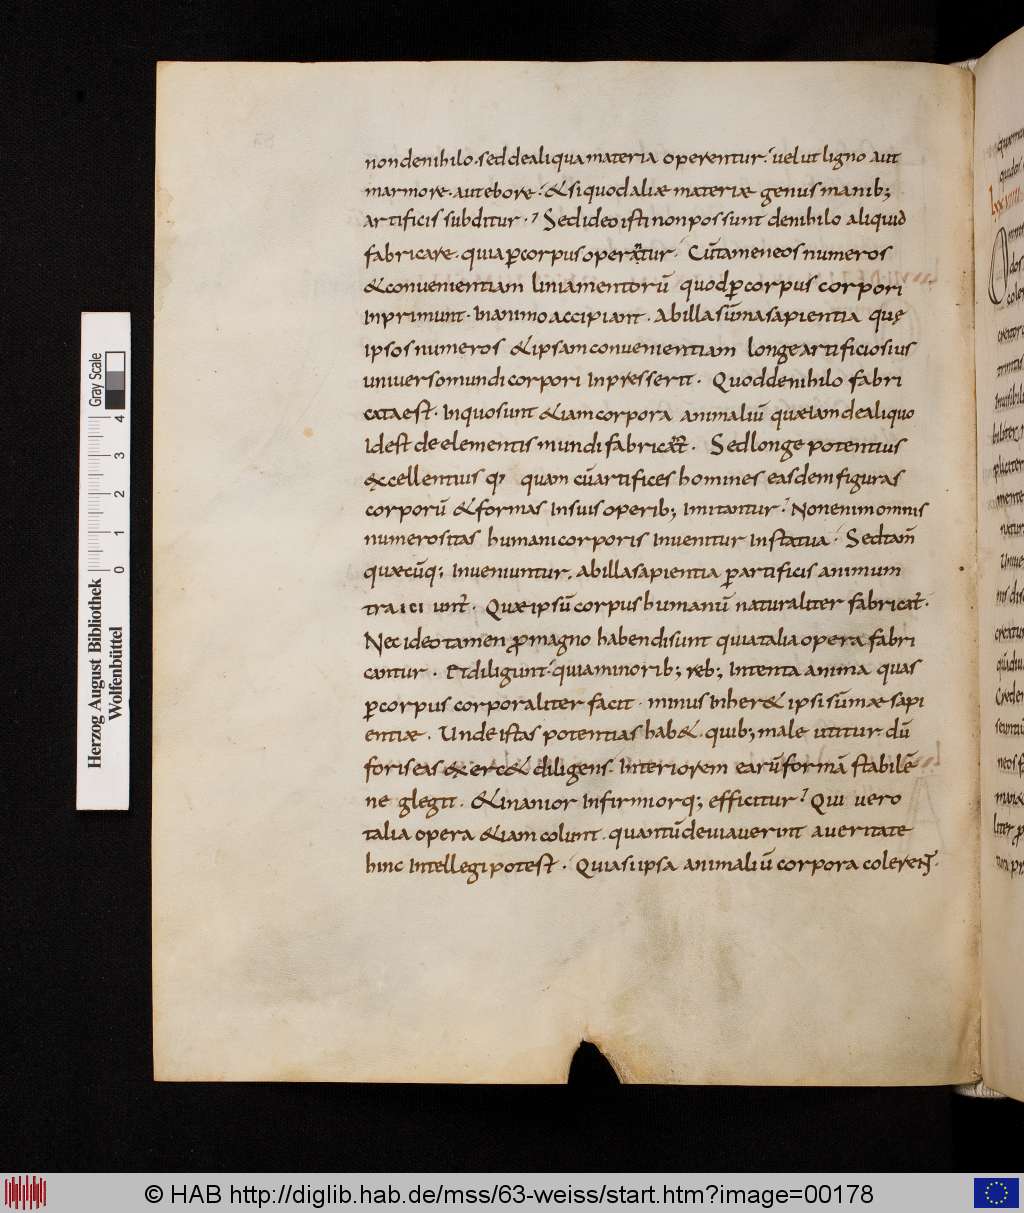 non denihilo · sed dealiqua materia operentur · uelut ligno aut
marmore · aut ebore · & siquod aliæ materiæ genus manib;
artificis subditur · Sed ideo isti non possunt denihilo aliquid
fabricare · quia p̲corpus operat̃ur · Cū tamen eos numeros
& conuenientiam liniamentorū quod p̲corpus corpori
Inprimunt · In animo accipiant · Abilla sūma sapientia quę
ipsos numeros & ipsam conuenientiam longe artificiosius
uniuerso mundi corpori Inpresserit · Quod denihilo fabri
cata est · Inquo sunt &iam corpora animaliū quæ iam dealiquo
Id est de elementis mundi fabricat̃ · Sed longe potentius
excellentius q; quam cū artifices homines easdem figuras
corporū & formas Insuis operib; Imitantur · Non enim omnis
numerositas humani corporis Inuenitur Instatua · Sed tam̄
quæcūq; Inueniuntur · Abilla sapientia p̲ artificis animum
traici unt̃ · Quæ ipsū corpus humanū naturaliter fabricat̃ ·
Nec ideo tamen p̲magno habendi sunt qui a talia opera fabri
cantur · Et diligunt · quia minorib; reb; Intenta anima quas
p̲corpus corporaliter facit · minus Inher& ipsi sūmæ sapi
entiæ · Unde istas potentias hab& · quib; male utitur dū
foris eas exerc& diligens · Interiorem earū formā stabilē
ne glegit · & inanior Infirmiorq; efficitur · Qui uero
talia opera &iam colunt · quantū deuiauerint a ueritate
hinc Intellegi potest · Quia si ipsa animaliū corpora colerent̃ ·
lxxuiiii
Herzog August Bibliothek
Wolfenbüttel
0 1 2 3 4
Gray Scale
© HAB http://diglib.hab.de/mss/63-weiss/start.htm?image=00178